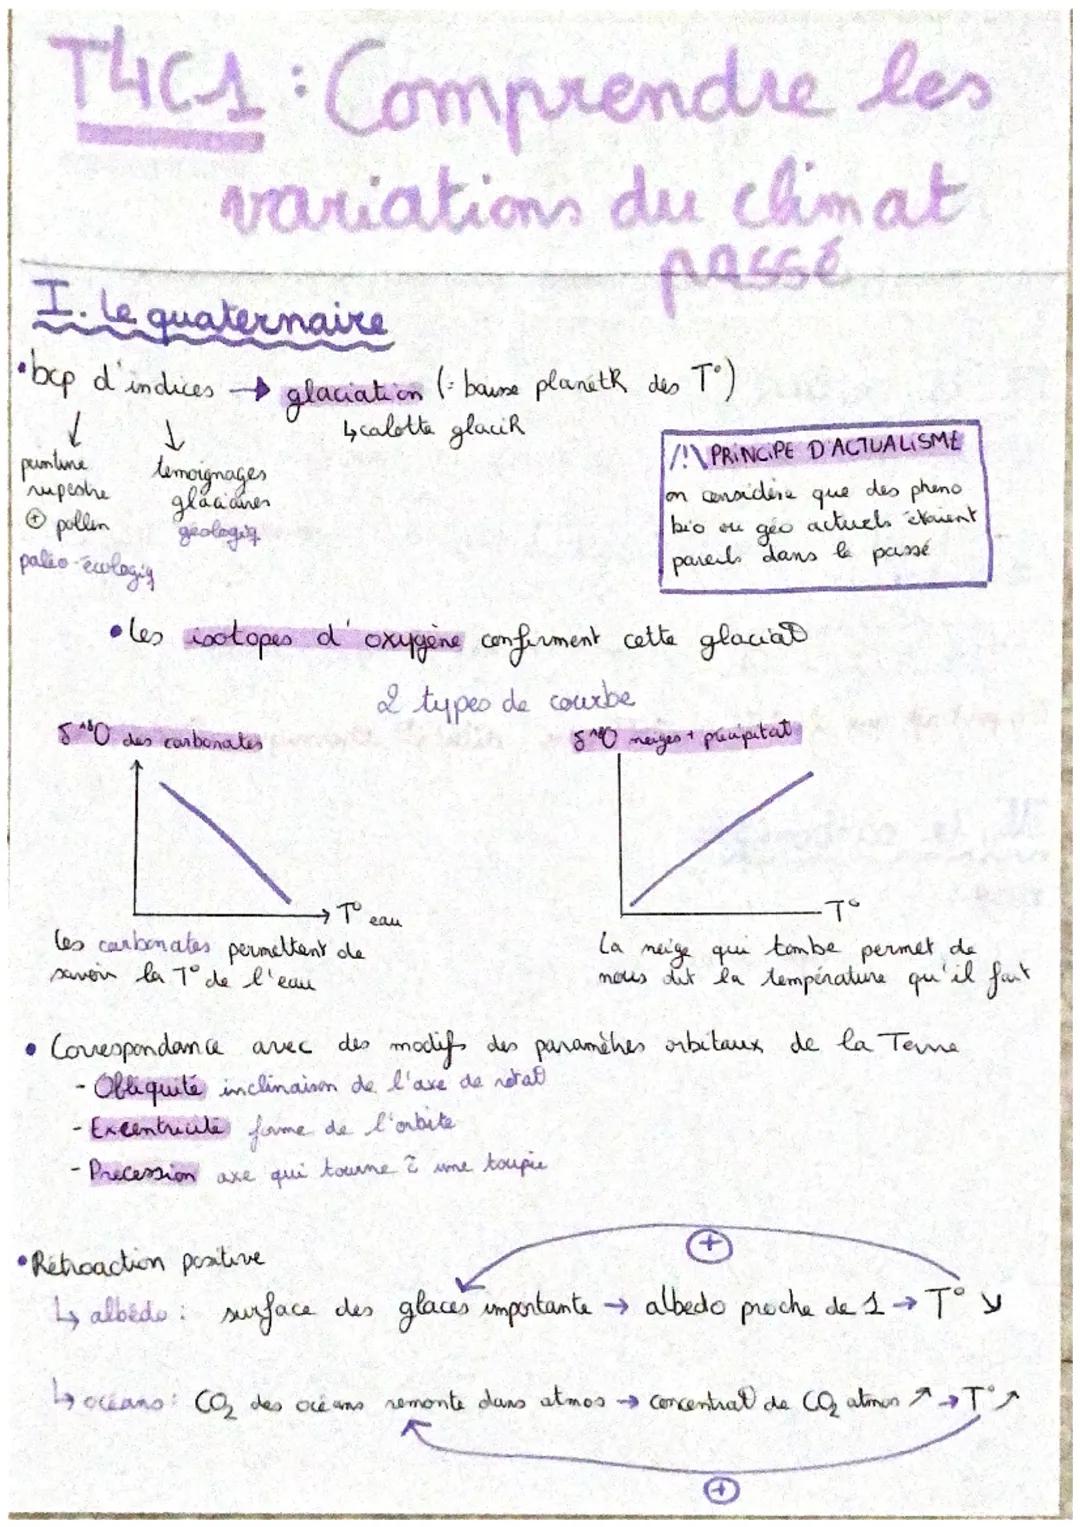 T4C1 : Comprendre les
variations du climat
passé
I. Le quaternaire
• bcp d'indices → glaciation (= baisse planétR des T°)
↳ calotte glaciR
peinture
rupestre
⊕ pollen
paléo-écologiq
temoignages
glaciaires
géologiq
/!\ PRINCIPE D'ACTUALISME
on considère que des pheno
bio ou géo actuels étaient
pareils dans le passé
• Les isotopes d'oxygène confirment cette glaciat°
2 types de courbe
δ18O des carbonates
T° eau
Les carbonates permettent de
savoir la T° de l'eau
δ18O neiges + précipitat°
T°
La neige qui tombe permet de
nous dit la température qu'il fait
• Correspondance avec des modifs des paramètres orbitaux de la Terre
- Obliquité inclinaison de l'axe de rotat°
- Excentricité forme de l'orbite
- Précession axe qui tourne c̃ une toupie
• Rétroaction positive
⊕
↳ albédo : surface des glaces importante → albedo proche de 1 → T° ↘
↳ océans : CO2 des océans remonte dans atmos → concentrat° de CO2 atmos ↗ → T° ↗
⊕